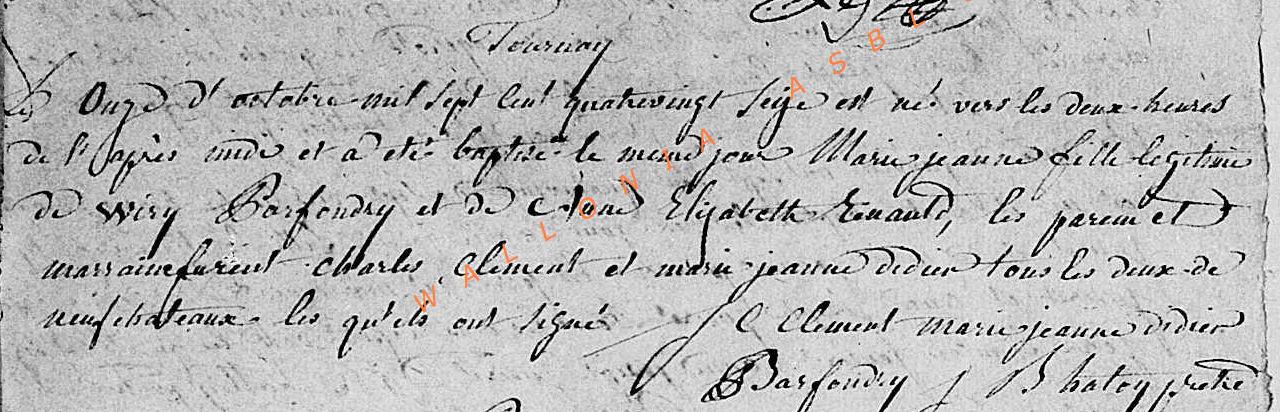 Tournay
Le Onze d'octobre mil sept cent quatrevingt seize est né vers les deux heures
de l'après midi et a été baptisé le meme jour Marie jeanne fille legitime
de Wiry Barfondry et de Elizabeth les parein et
marraine furent charles Clement et marie jeanne didier tous les deux de
neufchateaux les qu'els ont signé C Clement marie jeanne didier
Barfondry pretre
WALLONIA ASBL